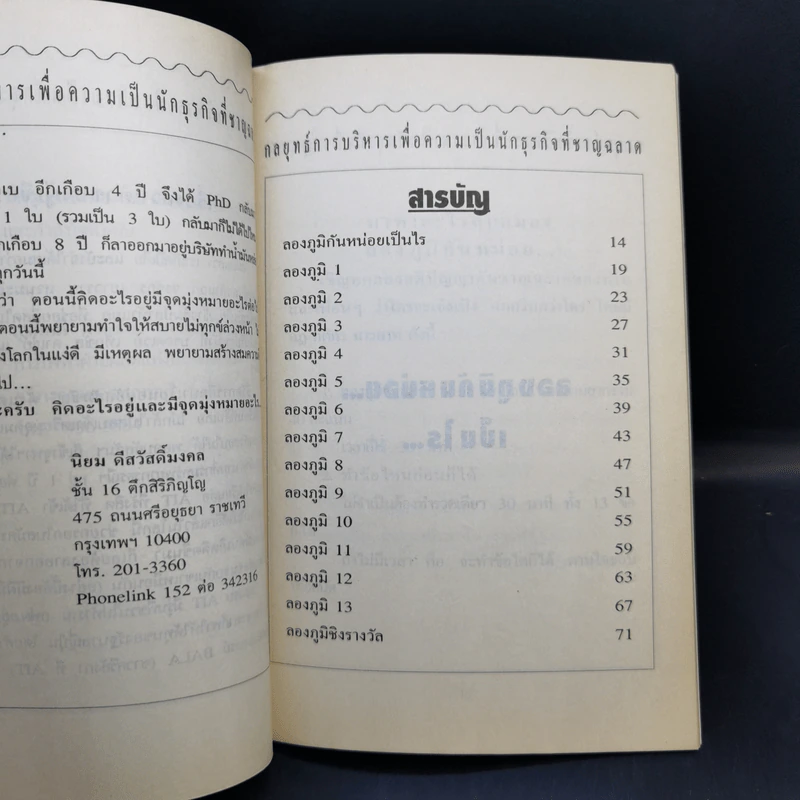 หารเพื่อความเป็นนักธุรกิจที่ชาญฉล
เบ อีกเกือบ 4 ปี จึงได้ PhD กลับมา
1 ใบ (รวมเป็น 3 ใบ) กลับมาก็ไม่ได้ไปไหน
กเกือบ 8 ปี ก็ลาออกมาอยู่บริษัททำน้ำมัน
ทุกวันนี้
ว่า ตอนนี้คิดอะไรอยู่มีจุดมุ่งหมายอะไรต่อไป
ตอนนี้พยายามทำใจให้สบายไม่ทุกข์ล่วงหน้า
งโลกในแง่ดี มีเหตุผล พยายามสร้างสมความ
ไป...
ะครับ คิดอะไรอยู่และมีจุดมุ่งหมายอะไร
นิยม ดีสวัสดิ์มงคล
ชั้น 16 ตึกสิริภิญโญ
475 ถนนศรีอยุธยา ราชเทวี
กรุงเทพฯ 10400
โทร. 201-3360
Phonelink 152 ต่อ 342316
กลยุทธ์การบริหารเพื่อความเป็นนักธุรกิจที่ชาญฉลาด
สารบัญ
ลองภูมิกันหน่อยเป็นไร 14
ลองภูมิ 1 19
ลองภูมิ 2 23
ลองภูมิ 3 27
ลองภูมิ 4 31
ลองภูมิ 5 35
ลองภูมิ 6 39
ลองภูมิ 7 43
ลองภูมิ 8 47
ลองภูมิ 9 51
ลองภูมิ 10 55
ลองภูมิ 11 59
ลองภูมิ 12 63
ลองภูมิ 13 67
ลองภูมิชิงรางวัล 71